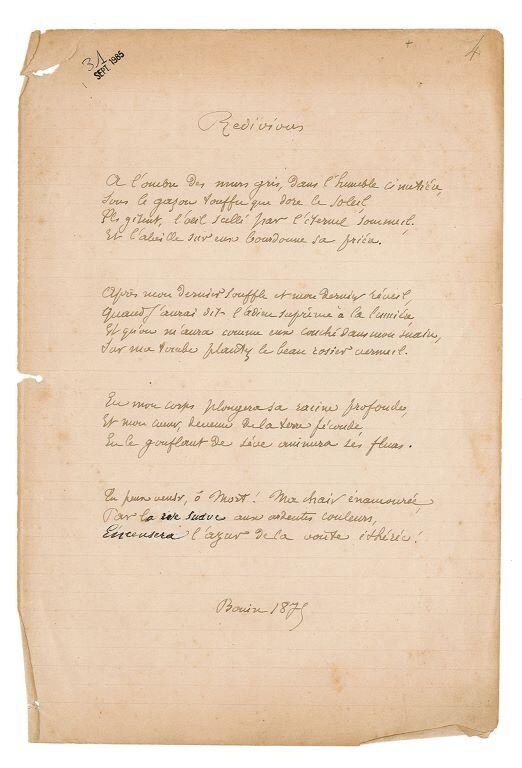 31
SEPT. 1985
4
Redivivus
A l'ombre des murs gris, dans l'humble cimetière,
Sous le gazon touffu que dore le soleil,
Ils gisent, l'œil scellé par l'éternel sommeil.
Et l'abeille sur eux bourdonne sa prière.
Après mon dernier souffle et mon dernier réveil,
Quand j'aurai dit l'adieu suprême à la lumière
Et qu'on m'aura comme eux couché dans mon suaire,
Sur ma tombe plantez le beau rosier vermeil.
En mon corps plongera sa racine profonde,
Et mon cœur, devenu de la terre féconde,
En le gonflant de sève animera ses fleurs.
Tu peux venir, ô Mort! Ma chair énamourée,
Par la rose suave aux ardentes couleurs,
Encensera l'azur de la voûte éthérée!
1875